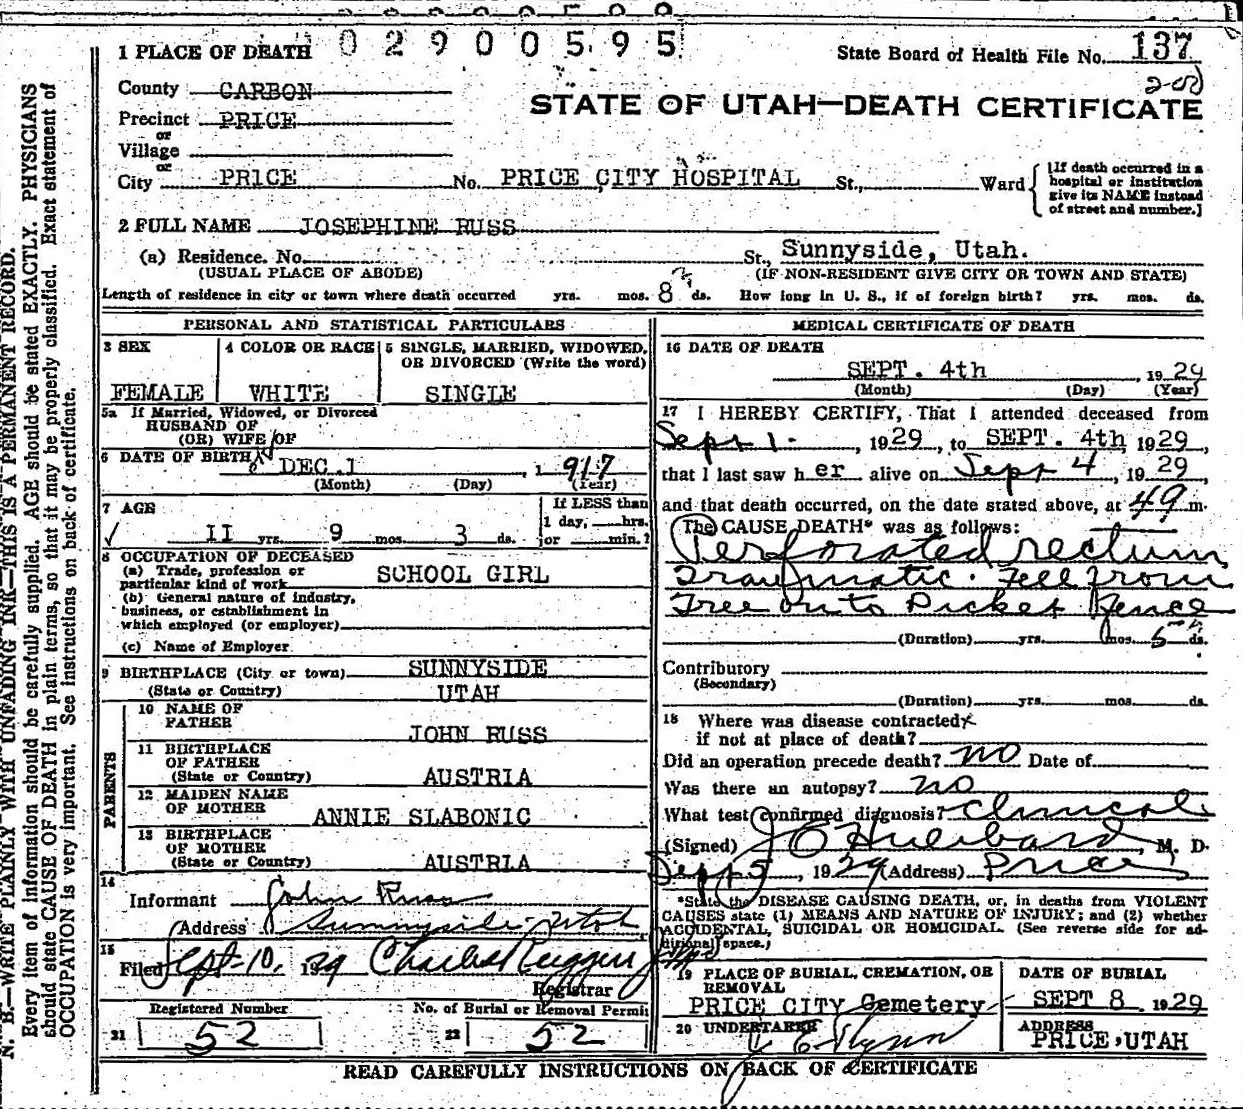 02900595
1 PLACE OF DEATH
State Board of Health File No. 137
County CARBON
STATE OF UTAH—DEATH CERTIFICATE
Precinct PRICE
or
Village
or
City PRICE No. PRICE CITY HOSPITAL St., Ward
[If death occurred in a
hospital or institution
give its NAME instead
of street and number.]
2 FULL NAME JOSEPHINE RUSS
(a) Residence. No. St., Sunnyside, Utah.
(USUAL PLACE OF ABODE) (IF NON-RESIDENT GIVE CITY OR TOWN AND STATE)
Length of residence in city or town where death occurred yrs. mos. 8 ds. How long in U. S., if of foreign birth? yrs. mos. ds.
PERSONAL AND STATISTICAL PARTICULARS
3 SEX
FEMALE
4 COLOR OR RACE
WHITE
5 SINGLE, MARRIED, WIDOWED,
OR DIVORCED (Write the word)
SINGLE
5a If Married, Widowed, or Divorced
HUSBAND OF
(OR) WIFE OF
6 DATE OF BIRTH DEC. 1, 1917
(Month) (Day) (Year)
7 AGE
11 yrs. 9 mos. 3 ds.
If LESS than
1 day, hrs.
or min.?
8 OCCUPATION OF DECEASED
(a) Trade, profession or
particular kind of work SCHOOL GIRL
(b) General nature of industry,
business, or establishment in
which employed (or employer)
(c) Name of Employer
9 BIRTHPLACE (City or town) SUNNYSIDE
(State or Country) UTAH
PARENTS
10 NAME OF
FATHER JOHN RUSS
11 BIRTHPLACE
OF FATHER
(State or Country) AUSTRIA
12 MAIDEN NAME
OF MOTHER ANNIE SLABONIC
13 BIRTHPLACE
OF MOTHER
(State or Country) AUSTRIA
14
Informant John Russ
Address Sunnyside Utah
15
Filed Sept 10, 1929 Charles Ruggeri
Registrar
Registered Number
21 52
No. of Burial or Removal Permit
22 52
MEDICAL CERTIFICATE OF DEATH
16 DATE OF DEATH
SEPT. 4th, 1929
(Month) (Day) (Year)
17 I HEREBY CERTIFY, That I attended deceased from
Sept 1, 1929, to SEPT. 4th 1929,
that I last saw her alive on Sept 4, 1929
and that death occurred, on the date stated above, at m.
The CAUSE DEATH* was as follows:
Perforated rectum
Traumatic. Fell from
Tree onto Picket fence
(Duration) yrs. mos. 5 ds.
Contributory
(Secondary)
(Duration) yrs. mos. ds.
18 Where was disease contracted
if not at place of death?
Did an operation precede death? no Date of
Was there an autopsy? no
What test confirmed diagnosis? Clinical
(Signed) J C Hubbard, M. D.
Sept 5, 1929 (Address) Price
*State the DISEASE CAUSING DEATH, or, in deaths from VIOLENT
CAUSES state (1) MEANS AND NATURE OF INJURY; and (2) whether
ACCIDENTAL, SUICIDAL OR HOMICIDAL. (See reverse side for ad-
ditional space.)
19 PLACE OF BURIAL, CREMATION, OR
REMOVAL
PRICE CITY Cemetery
DATE OF BURIAL
SEPT 8 1929
20 UNDERTAKER
J E Flynn
ADDRESS
PRICE, UTAH
READ CAREFULLY INSTRUCTIONS ON BACK OF CERTIFICATE
N. B.—WRITE PLAINLY WITH UNFADING INK—THIS IS A PERMANENT RECORD.
Every item of information should be carefully supplied. AGE should be stated EXACTLY. PHYSICIANS
should state CAUSE OF DEATH in plain terms, so that it may be properly classified. Exact statement of
OCCUPATION is very important. See instructions on back of certificate.